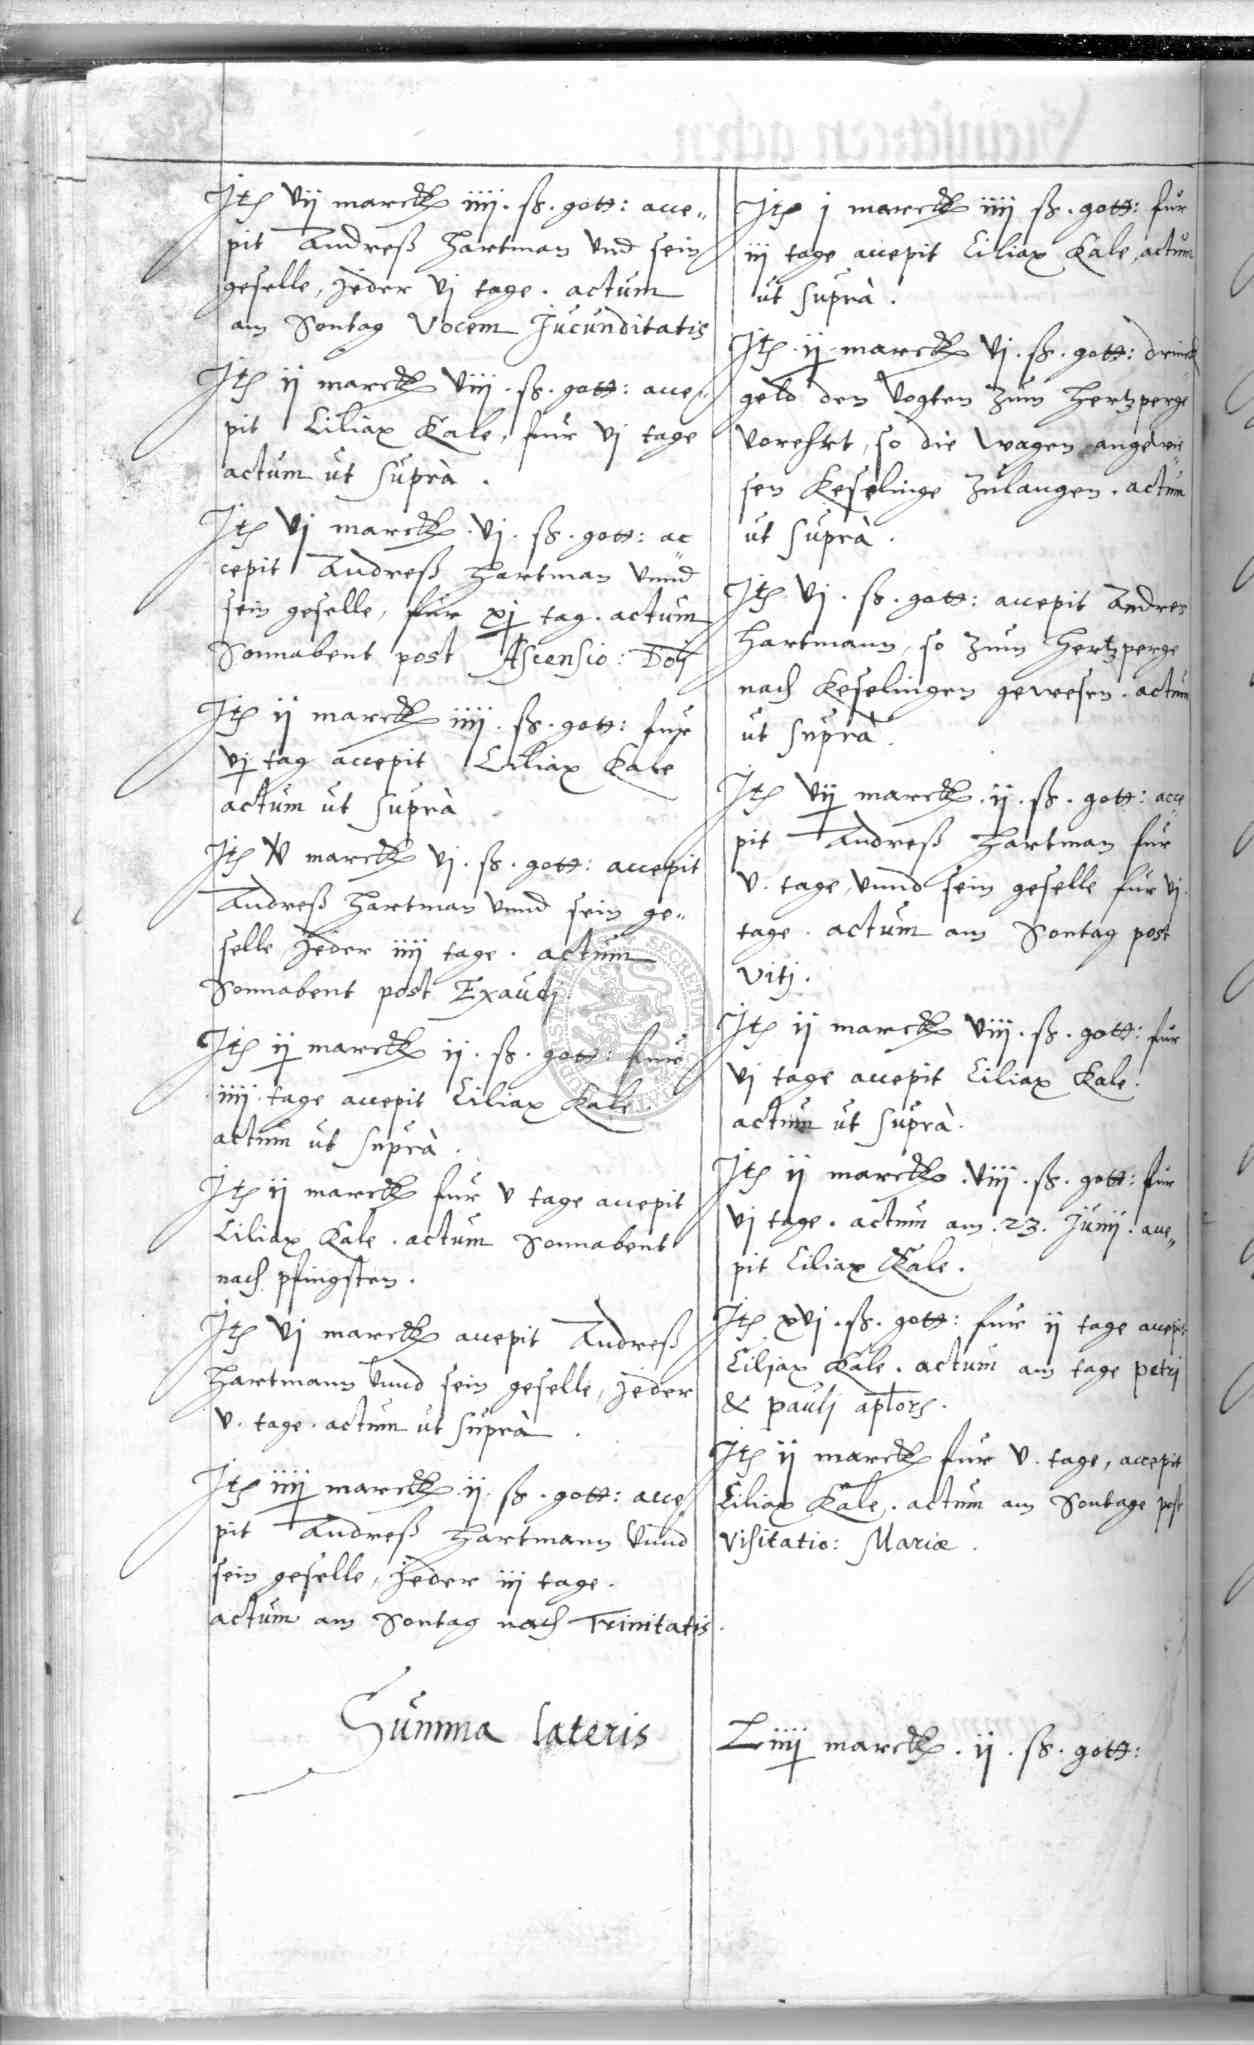 Jtē vij marck iiij. ß. gott: acce„
pit Andreß Hartman vnd sein
geselle, Jeder vj tage. actum
am Sontag Vocem Jucunditatis
Jtē ij marck viij. ß. gott: acce„
pit Ciliax Kale, fur vj tage
actum ut suprà.
Jtē vj marck. vj. ß. gott: ac„
cepit Andreß Hartman vnnd
sein geselle, fur xj tag. actum
Sonnabent post Ascensio: Doī
Jtē ij marck iiij. ß. gott: fur
vj tag accepit Ciliax Kale
actum ut suprà
Jtē v marck vj. ß. gott: accepit
Andreß Hartman vnnd sein ge„
selle Jeder iiij tage. actum
Sonnabent post Exaudj
Jtē ij marck ij. ß. gott: fur
iiij. tage accepit Ciliax Kale.
actum ut suprà.
Jtē ij marck fur v tage accepit
Ciliax Kale. actum Sonnabent
nach pfingsten.
Jtē vj marck accepit Andreß
Hartmann vnnd sein geselle, Jeder
v. tage. actum ut suprà.
Jtē iiij marck. ij. ß. gott: acce„
pit Andreß Hartmann vnnd
sein geselle, Jeder iij tage.
actum am Sontag nach Trinitatis.
Jtē j marck iiij ß. gott: fur
iij tage accepit Ciliax Kale, actum
ut suprà.
Jtē. ij. marck vj. ß. gott: drinck„
geld den Vogten zum Hertzperge
vorehrt, so die wagen angewie„
sen Keselinge zulangen. actum
ut suprà.
Jtē vj. ß. gott: accepit Andres
Hartmann, so zum Hertzperge
nach Keselingen gewesen. actum
ut suprà.
Jtē vij marck. ij. ß. gott: acce„
pit Andreß Hartman fur
v. tage, vnnd sein geselle fur vj.
tage. actum am Sontag post
Vitj.
Jtē ij marck viij. ß. gott: fur
vj tage accepit Ciliax Kale.
actum ut suprà.
Jtē ij marck. viij. ß. gott: fur
vj tage. actum am. 23. Junij. acce„
pit Ciliax Kale.
Jtē xvj. ß. gott: fur ij tage accepit
Ciliax Kale. actum am tage petrj
& paulj aplors.
Jtē ij marck fur v. tage, accepit
Ciliax Kale. actum am Sontage post
Visitatio: Mariæ.
Summa lateris Liiij marck. ij. ß. gott: